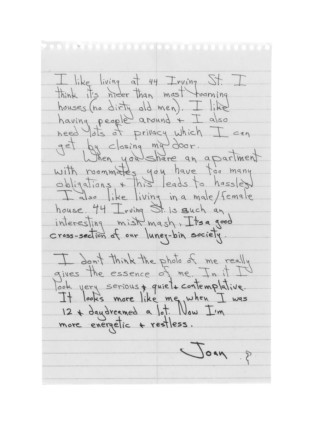 I like living at 44 Irving St. I
think it's nicer than most rooming
houses (no dirty old men). I like
having people around & I also
need lots of privacy which I can
get by closing my door.
When you share an apartment
with roommates you have too many
obligations & this leads to hassles
I also like living in a male/female
house 44 Irving St is such an
interesting mish mash. Its a good
cross-section of our luney-bin society
I don't think the photo of me really
gives the essence of me. In it I
look very serious & quiet & contemplative.
It looks more like me when I was
12 & daydreamed a lot. Now I'm
more energetic & restless.
Joan